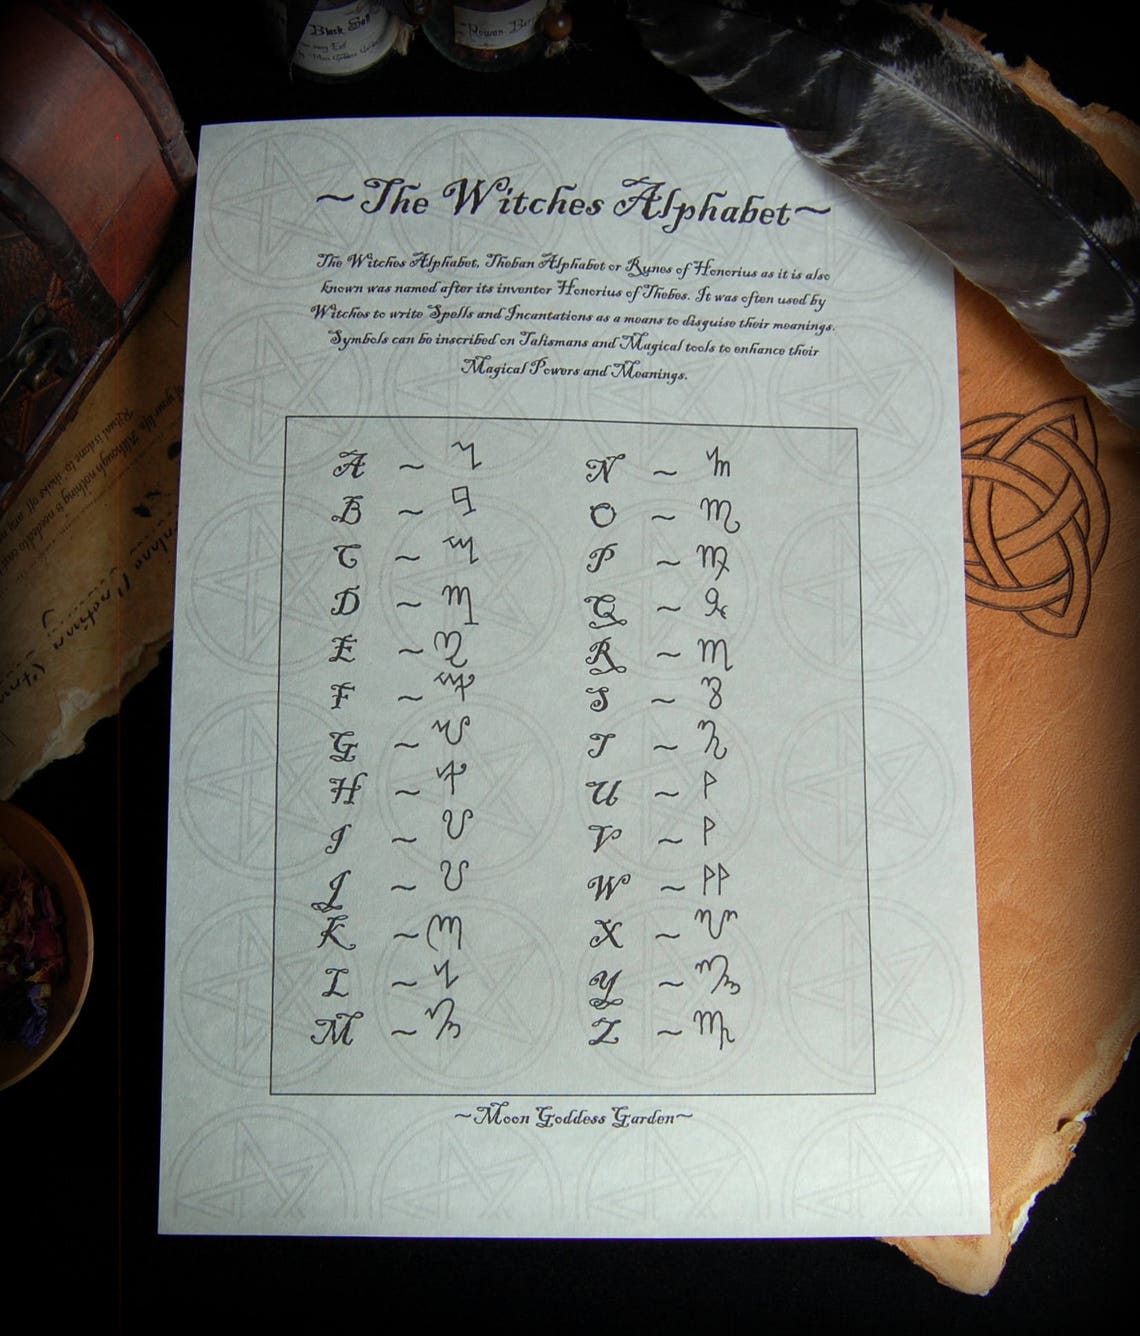 Black Salt
Rowan Ber
~The Witches Alphabet~
The Witches Alphabet, Theban Alphabet or Runes of Honorius as it is also
known was named after its inventor Honorius of Thebes. It was often used by
Witches to write Spells and Incantations as a means to disguise their meanings.
Symbols can be inscribed on Talismans and Magical tools to enhance their
Magical Powers and Meanings.
A ~ N ~
B ~ O ~
C ~ P ~
D ~ Q ~
E ~ R ~
F ~ S ~
G ~ T ~
H ~ U ~
I ~ V ~
J ~ W ~
K ~ X ~
L ~ Y ~
M ~ Z ~
~Moon Goddess Garden~